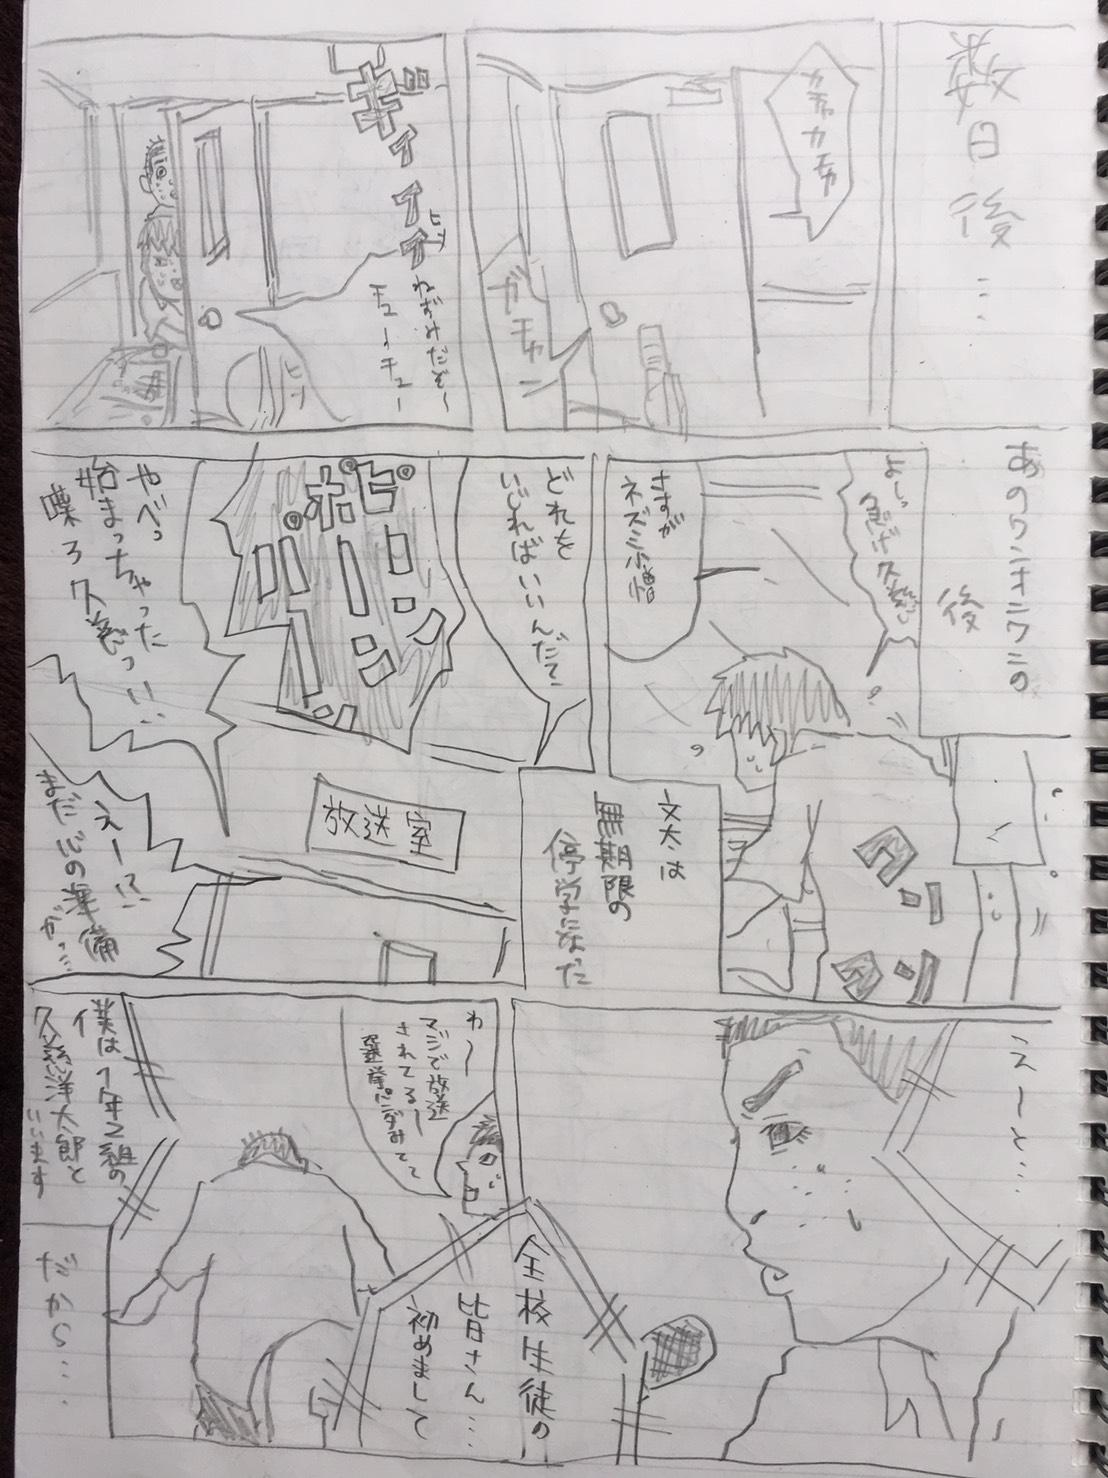 数日後…
ガチャガチャ
ガチャン
ギィイイイ
ヒソ
ねずみだぞ〜
チューチュー
ヒソ
あのワンオンワンの
後
よしっ
急げ久慈っ
さすが
ネズミ小僧
文太は
無期限の
停学になった
どれを
いじればいいんだて
ピンポンパーン
やべっ
始まっちゃった
喋ろ久慈っ!!
放送室
えー!?
まだ心の準備
がっ…
えーと…
全校生徒の
皆さん…
初めまして
わ〜
マジで放送
されてる〜
選挙パンダみてて
僕は1年2組の
久慈洋太郎と
いいます
だから…